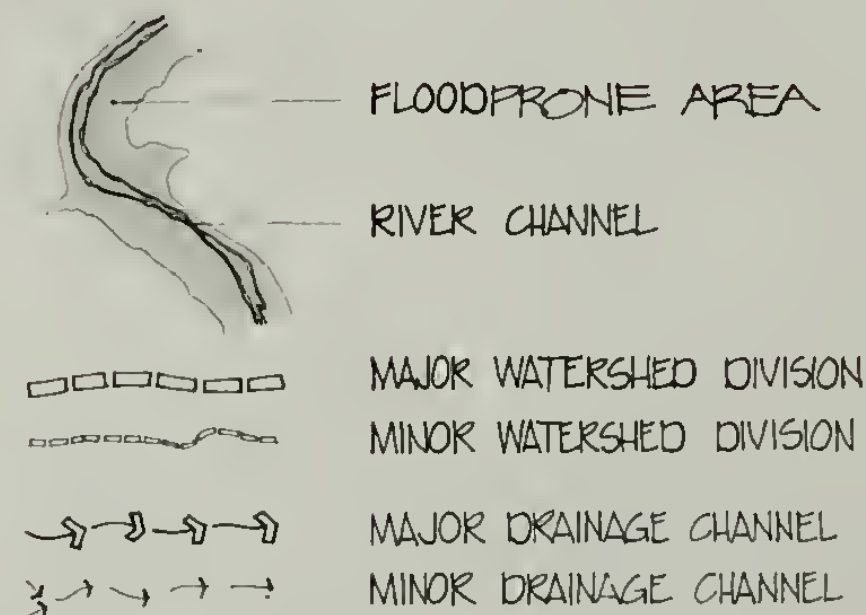 FLOODPRONE AREA
RIVER CHANNEL
MAJOR WATERSHED DIVISION
MINOR WATERSHED DIVISION
MAJOR DRAINAGE CHANNEL
MINOR DRAINAGE CHANNEL